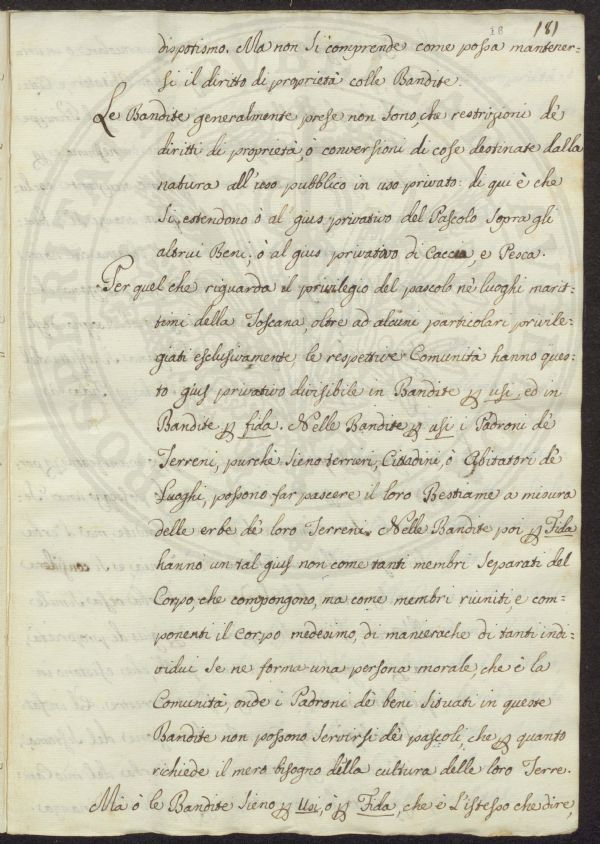 18 181
dispotismo. Ma non si comprende come possa mantener=
si il diritto di proprietà colle Bandite.
Le Bandite generalmente prese non sono, che restrizioni de'
diritti di proprietà, ò conversioni di cose destinate dalla
natura all'uso pubblico in uso privato: di quì è che
si estendono ò al gius privativo del Pascolo sopra gli
altrui Beni, ò al gius privativo di Caccia, e Pesca.
Per quel che riguarda il privilegio del pascolo ne' luoghi marit=
timi della Toscana, oltre ad alcuni particolari privile=
giati esclusivamente, le respettive Comunità hanno ques=
to gius privativo divisibile in Bandite ꝑ usi, ed in
Bandite ꝑ fida. Nelle Bandite ꝑ usi i Padroni de'
Terreni, purchè sieno terrieri, Cittadini, ò Abitatori de'
Luoghi, possono far pascere il loro Bestiame a misura
delle erbe de' loro Terreni. Nelle Bandite poi ꝑ Fida
hanno un tal gius non come tanti membri separati del
Corpo, che compongono, ma come membri riuniti, e com=
ponenti il Corpo medesimo, di manierache di tanti indi=
vidui se ne forma una persona morale, che è la
Comunità, onde i Padroni de' beni situati in queste
Bandite non possono servirsi de' pascoli, che ꝑ quanto
richiede il mero bisogno della cultura delle loro Terre.
Mà ò le Bandite sieno ꝑ Usi, ò ꝑ Fida, che è l'istesso che dire,